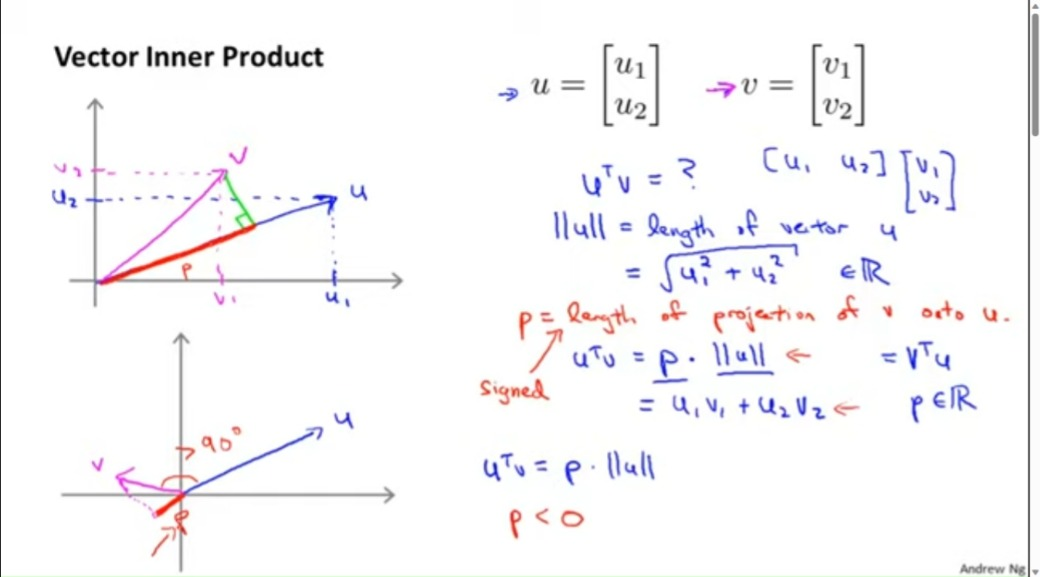 Vector Inner Product
→ u = [u1 u2] → v = [v1 v2]
uᵀv = ? [u₁ u₂] [v₁ v₂]
||u|| = length of vector u
= √(u₁² + u₂²) ∈ ℝ
p = length of projection of v onto u.
signed
uᵀv = p · ||u|| ← = vᵀu
= u₁v₁ + u₂v₂ ← p ∈ ℝ
uᵀv = p · ||u||
p < 0
v
v₂
u₂
u
p
v₁
u₁
u
> 90°
v
p
Andrew Ng